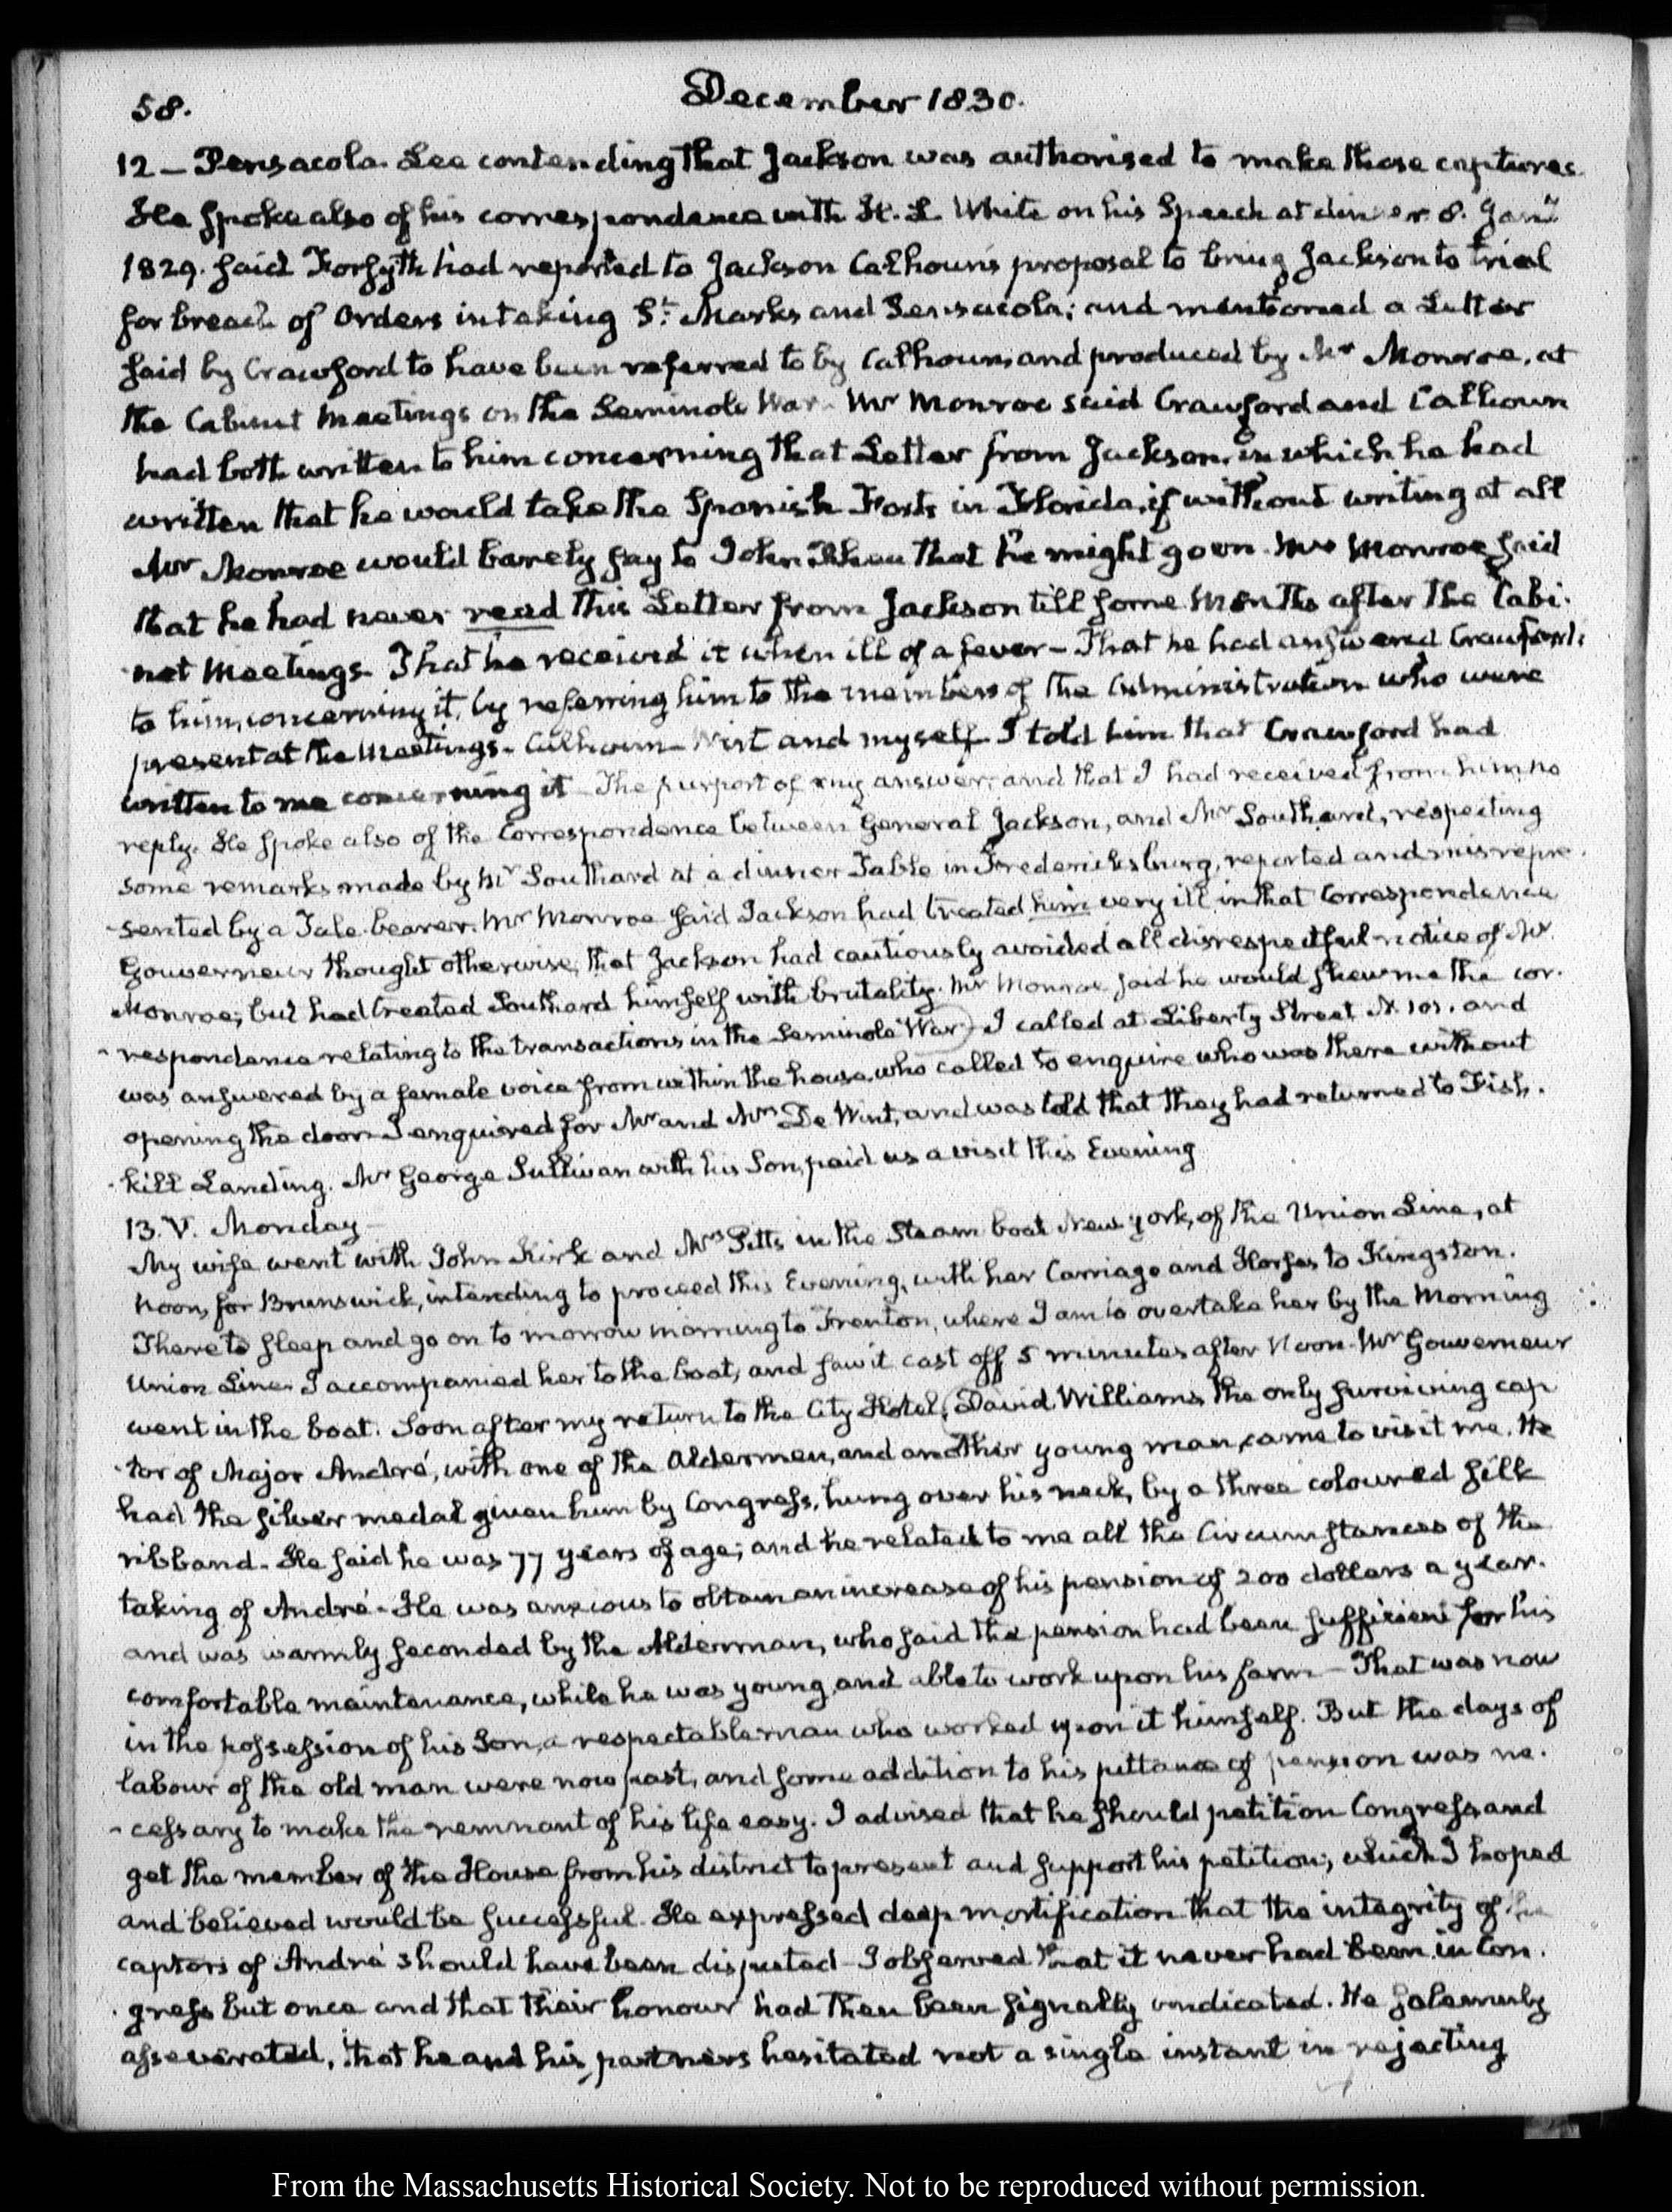 58.
December 1830.
12 — Pensacola. Lee contending that Jackson was authorised to make those captures
He spoke also of his correspondence with H. L. White on his Speech at dinner 8. Jany
1829. said Forsyth had reported to Jackson Calhoun's proposal to bring Jackson to trial
for breach of Orders in taking St. Marks and Pensacola; and mentioned a Letter
said by Crawford to have been referred to by Calhoun, and produced by Mr Monroe, at
the Cabinet Meetings on the Seminole War. Mr Monroe said Crawford and Calhoun
had both written to him concerning that Letter from Jackson, in which he had
written that he would take the Spanish Forts in Florida, if without writing at all
Mr Monroe would barely say to John Rhea that he might go on. Mr Monroe said
that he had never read this Letter from Jackson till some Months after the Cabi-
-net Meetings. That he received it when ill of a fever — That he had answered Crawford's
to him, concerning it, by referring him to the members of the Administration who were
present at the Meetings — Calhoun — Wirt and myself. I told him that Crawford had
written to me concerning it — The purport of my answer; and that I had received from him no
reply. He spoke also of the Correspondence between General Jackson, and Mr Southard, respecting
some remarks made by Mr Southard at a dinner Table in Fredericksburg, reported and misrepre-
-sented by a Tale-bearer. Mr Monroe said Jackson had treated him very ill in that Correspondence
Gouverneur thought otherwise; that Jackson had cautiously avoided all disrespectful notice of Mr
Monroe; but had treated Southard himself with brutality. Mr Monroe said he would shew me the cor-
-respondence relating to the transactions in the Seminole War. I called at Liberty Street N. 101. and
was answered by a female voice from within the house, who called to enquire who was there without
opening the door. I enquired for Mr and Mrs De Wint, and was told that they had returned to Fish-
-kill Landing. Mr George Sullivan with his Son, paid us a visit this Evening
13. V. Monday —
My wife went with John Kirk and Mrs Pitts in the Steam boat New York, of the Union Line, at
Noon, for Brunswick, intending to proceed this Evening, with her Carriage and Horses to Kingston.
There to sleep and go on to morrow morning to Trenton, where I am to overtake her by the Morning
Union Line. I accompanied her to the boat, and saw it cast off 5 minutes after Noon. Mr Gouverneur
went in the boat. Soon after my return to the City Hotel, David Williams, the only surviving cap-
-tor of Major André, with one of the Aldermen, and another young man, came to visit me. He
had the silver medal given him by Congress, hung over his neck, by a three coloured silk
ribband. He said he was 77 years of age; and he related to me all the Circumstances of the
taking of André. He was anxious to obtain an increase of his pension of 200 dollars a year.
and was warmly seconded by the Alderman, who said the pension had been sufficient for his
comfortable maintenance, while he was young, and able to work upon his farm — That was now
in the possession of his Son, a respectable man who worked upon it himself. But the days of
labour of the old man were now past, and some addition to his pittance of pension was ne-
-cessary to make the remnant of his life easy. I advised that he should petition Congress and
get the member of the House from his district to present and support his petition; which I hoped
and believed would be successful. He expressed deep mortification that the integrity of the
captors of André should have been disputed — I observed that it never had been in Con-
-gress but once and that their honour had then been signally vindicated. He solemnly
asseverated, that he and his partners hesitated not a single instant in rejecting
From the Massachusetts Historical Society. Not to be reproduced without permission.